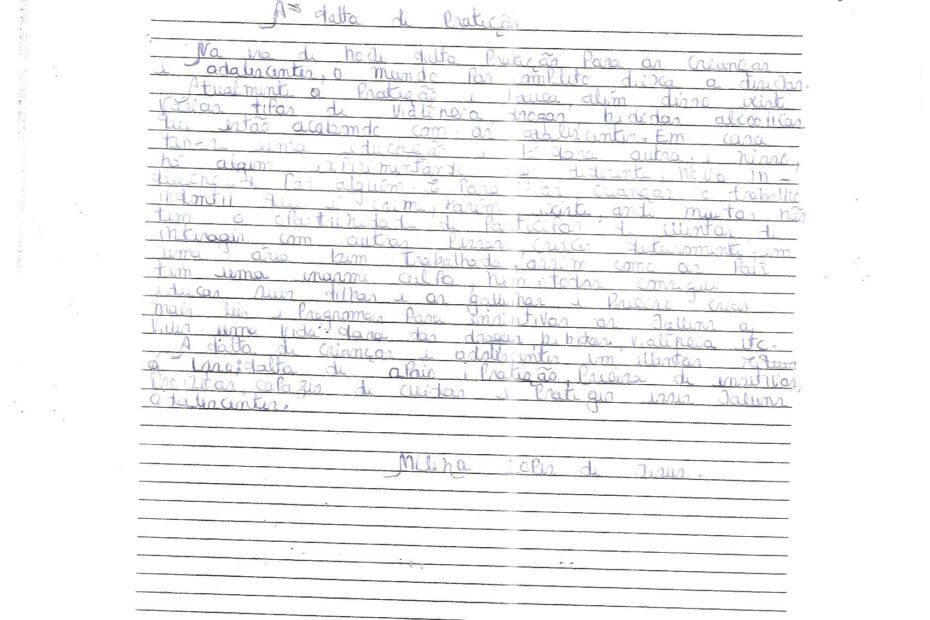 A falta de Proteção
Na era de hoje falta Proteção Para as crianças
e adolescentes, o mundo Por completo deixa a desejar.
Atualmente a Proteção é Pouca, além disso existe
várias tipos de violência, drogas, bebidas alcoolicas
que estão acabando com os adolescentes. Em casa
tem-se uma educação e fora outra, nisso,
há algum experimentando diferente, novo in-
Por alguém. E Para as crianças o trabalho
infantil que é crime, Porém existe ante muitos não
tem a oportunidade de Participar de eventos de
interagir com outras Pessoas, crescer em
uma área bem trabalhada, assim como os Pais
tem uma inorme culpa, nem todos consegue
educar seus filhos e os é Preciso criar
mais leis e Programas Para insintivar os Jalens a
viver uma vida fora das drogas, bebidas, violência etc.
A falta de crianças e adolescentes em eventos
é isso; falta de apoio e Proteção, Precisa de insetivos,
Projetos capazes de cuidar e Proteger esses Jalens
adolescentes.
Milena Lopes de Jesus.